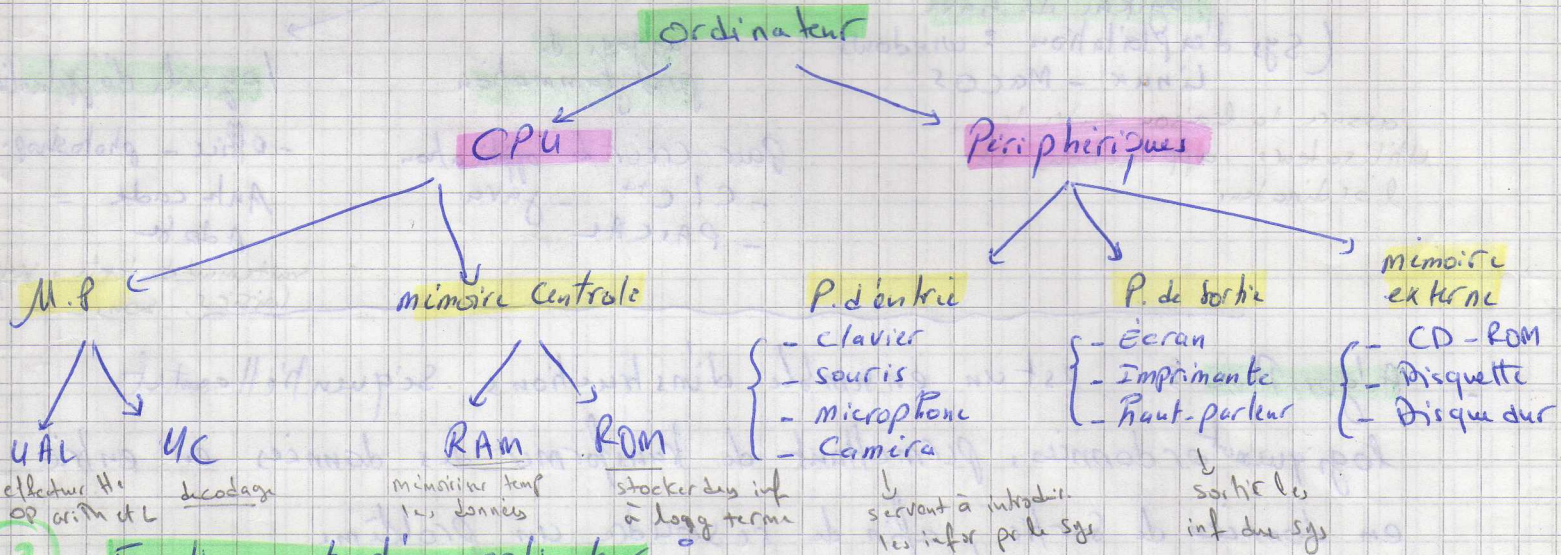 Ordinateur
CPU
Périphériques
M.P
mémoire Centrale
P. d'entrée
P. de sortie
mémoire
externe
UAL
UC
RAM
ROM
- clavier
- souris
- microphone
- Caméra
- Écran
- Imprimante
- haut-parleur
- CD-ROM
- Disquette
- Disque dur
effectuer tte
OP arith et L
decodage
mémoriser temp
les données
stocker des inf
à long terme
servant à introduir
les infor pr le sys
sortir les
inf du sys